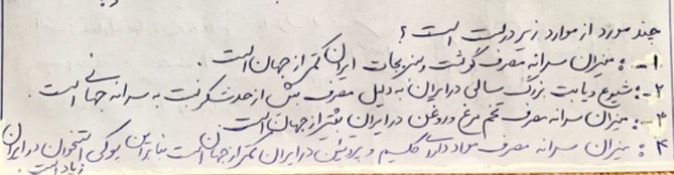 چند مورد از موارد زیر درست است؟
۱-: میزان سرانه مصرف گوشت و سبزیجات ایران کمتر از جهان است.
۲-: شیوع دیابت بزرگ سالی در ایران به دلیل مصرف بیش از حد شکر نسبت به سرانه جهانی است.
۳-: میزان سرانه مصرف تخم مرغ و روغن در ایران بیشتر از جهان است.
۴: میزان سرانه مصرف مواد دارای کلسیم و پروتئین در ایران کمتر از جهان است بنابراین پوکی استخوان در ایران
زیاد است.